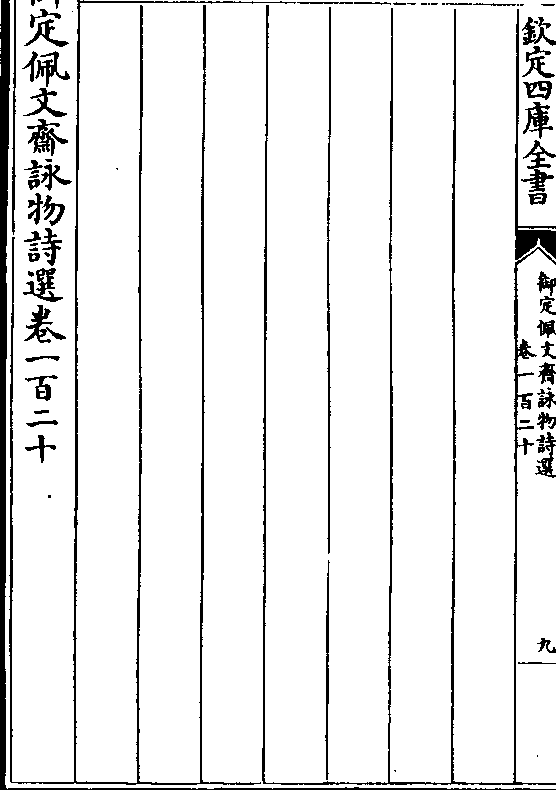 欽定四庫全書
御定佩文齋詠物詩選
卷一百二十
九
御定佩文齋詠物詩選卷一百二十